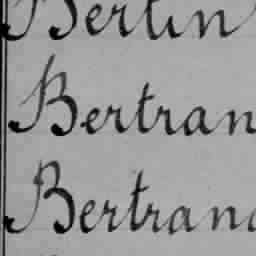 Bertin
Bertran
Bertrand